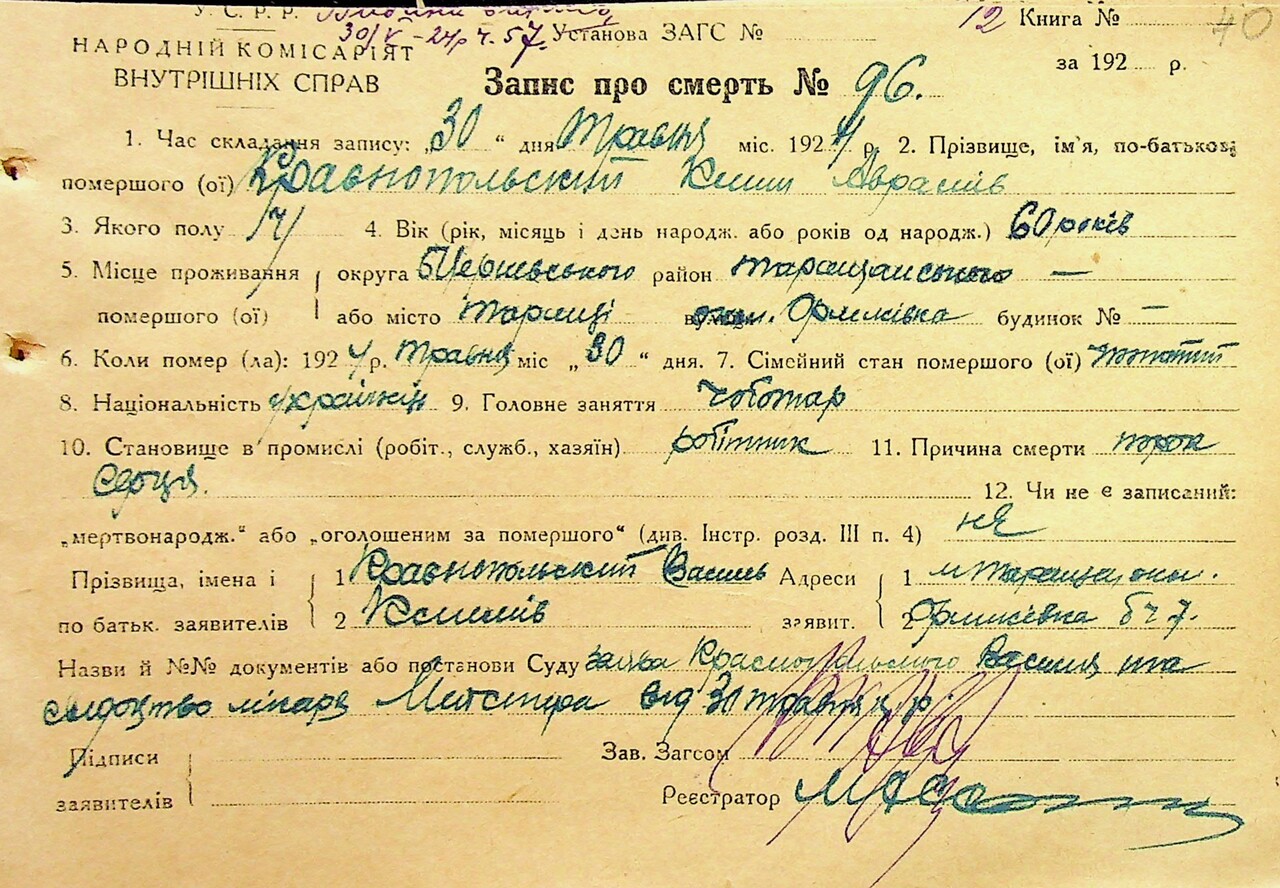 У. С. Р. Р.
30/V - 24р ч. 57. Установа ЗАГС № 12 Книга № 40
НАРОДНІЙ КОМІСАРІЯТ
ВНУТРІШНІХ СПРАВ
за 192 р.
Запис про смерть № 96.
1. Час складання запису: „30“ дня Травня міс. 1924 р. 2. Прізвище, ім'я, по-батькові
помершого (ої) Краснопольский Аврамів
3. Якого полу Ч 4. Вік (рік, місяць і день народж. або років од народж.) 60 років
5. Місце проживання округа БЦерківського район таращанського —
помершого (ої) або місто Таращі будинок № —
6. Коли помер (ла): 1924 р. травня міс „30“ дня. 7. Сімейний стан помершого (ої) жонатий
8. Національність українець 9. Головне заняття чоботар
10. Становище в промислі (робіт., служб., хазяїн) робітник 11. Причина смерти порок
серця. 12. Чи не є записаний:
„мертвонародж.“ або „оголошеним за помершого“ (див. Інстр. розд. III п. 4) ні
Прізвища, імена і 1 Краснопольский Василь Адреси 1 м Таращա окол.
по батьк. заявителів 2 заявит. 2 б ч 7.
Назви й №№ документів або постанови Суду заява Краснопольського Василя та
свідоцтво лікаря від 30 травня ц.р.
Підписи Зав. Загсом
заявителів Реєстратор